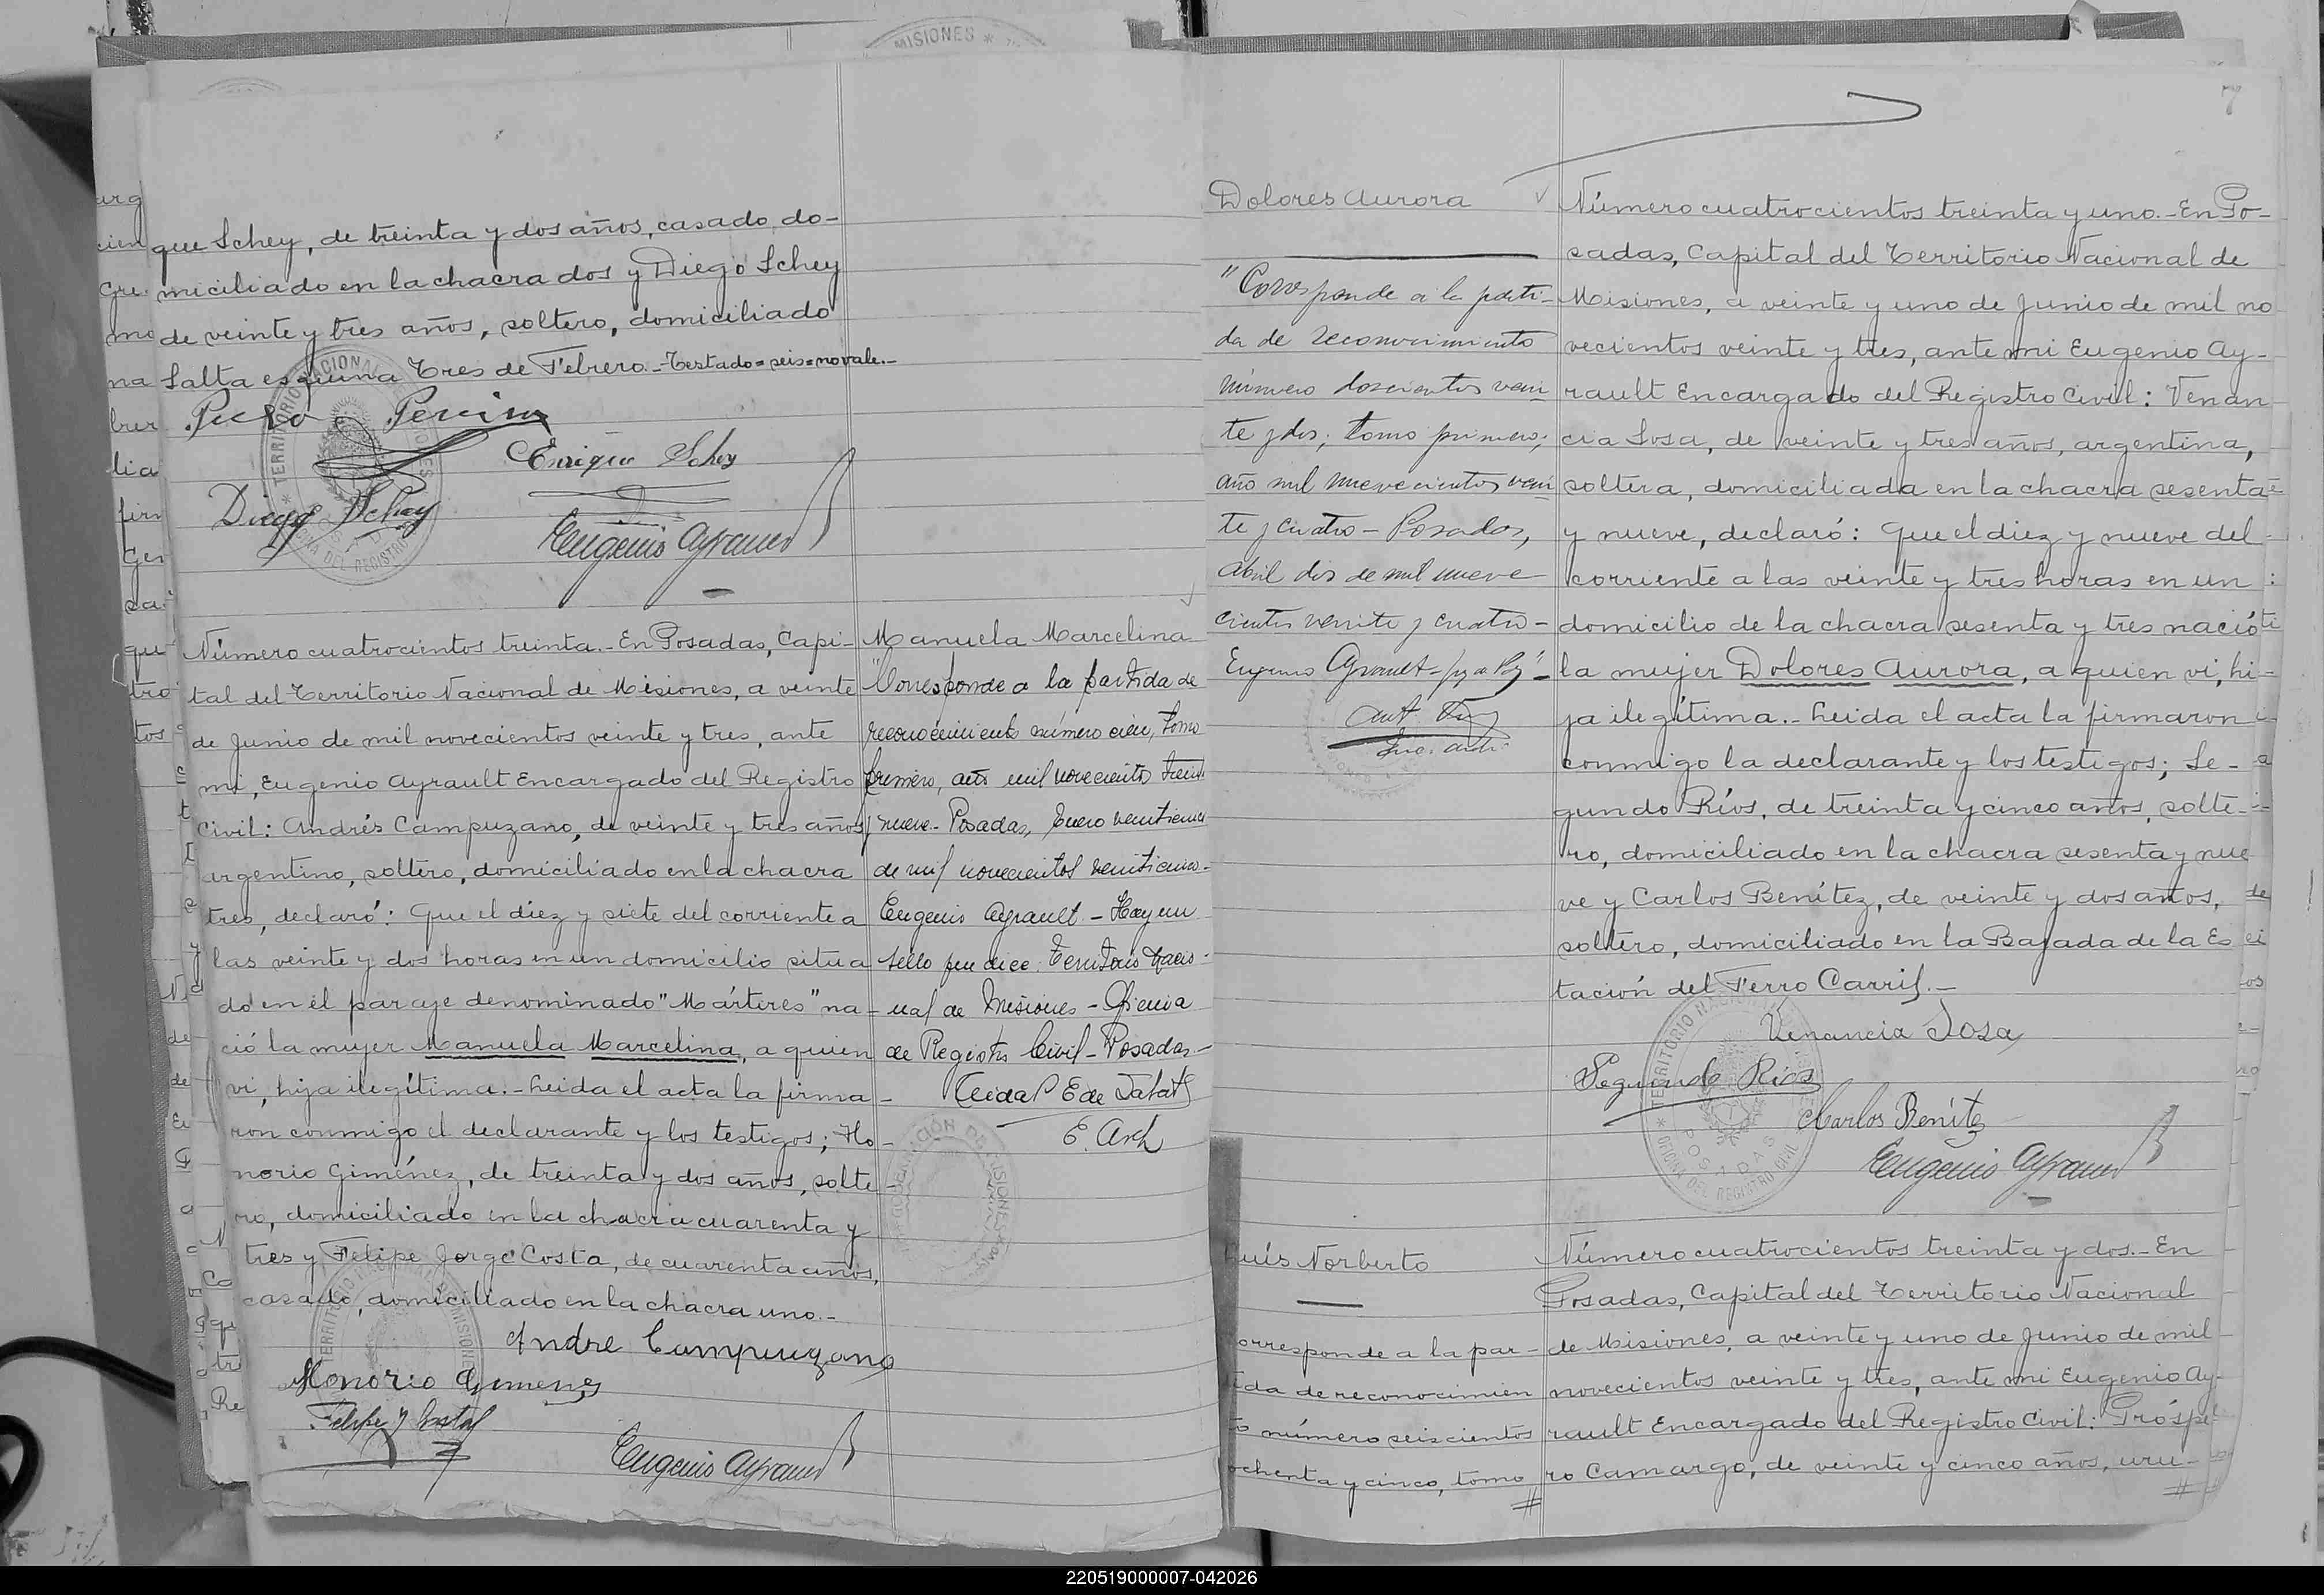 que Schey, de treinta y dos años, casado, do-
miciliado en la chacra dos y Diego Schey
de veinte y tres años, soltero, domiciliado
Salta esquina Tres de Febrero.-Testado=seis=no vale.-
Enrique Schey
Diego Schey
Eugenio Ayrault
Número cuatrocientos treinta.-En Posadas, Capi-
tal del Territorio Nacional de Misiones, a veinte
de Junio de mil novecientos veinte y tres, ante
mi, Eugenio Ayrault Encargado del Registro
Civil: Andrés Campuzano, de veinte y tres años,
argentino, soltero, domiciliado en la chacra
tres, declaró: Que el diez y siete del corriente a
las veinte y dos horas en un domicilio situa
do en el paraje denominado "Márteres" na-
ció la mujer Manuela Marcelina, a quien
vi, hija ilegítima.-Leida el acta la firma-
ron conmigo el declarante y los testigos; Ho-
norio Giménez, de treinta y dos años, solte-
ro, domiciliado en la chacra cuarenta y
tres y Felipe Jorge Costa, de cuarenta años,
casado, domiciliado en la chacra uno.-
Andre Campuzano
Honorio Gimenez
Felipe J Costa
Eugenio Ayrault
Manuela Marcelina
"Corresponde a la partida de
reconocimiento número cien, tomo
primero, año mil novecientos
nueve- Posadas, Enero
de mil novecientos
Eugenio Ayrault - Hay un
sello que dice: Territorio Nacio-
nal de Misiones - Oficina
de Registro Civil - Posadas.-
E. Arch
7
Dolores Aurora
"Corresponde a la parti-
da de reconocimiento
número doscientos vein
te y dos; tomo primero;
año mil nuevecientos vein
te y cuatro - Posadas,
Abril dos de mil nueve
cientos veinte y cuatro -
Eugenio Ayrault
Número cuatrocientos treinta y uno.-En Po-
sadas, Capital del Territorio Nacional de
Misiones, a veinte y uno de Junio de mil no
vecientos veinte y tres, ante mi Eugenio Ay-
rault Encargado del Registro Civil: Venan
cia Sosa, de veinte y tres años, argentina,
soltera, domiciliada en la chacra sesenta
y nueve, declaró: Que el diez y nueve del
corriente a las veinte y tres horas en un
domicilio de la chacra sesenta y tres nació
la mujer Dolores Aurora, a quien vi, hi-
ja ilegítima.-Leida el acta la firmaron
conmigo la declarante y los testigos; Se-
gundo Ríos, de treinta y cinco años, solte-
ro, domiciliado en la chacra sesenta y nue
ve y Carlos Benítez, de veinte y dos años,
soltero, domiciliado en la Bajada de la Es
tación del Ferro Carril.-
Venancia Sosa
Segundo Rios
Carlos Benítez
Eugenio Ayrault
Luís Norberto
orresponde a la par-
ida de reconocimien
to número seiscientos
ochenta y cinco, tomo
Número cuatrocientos treinta y dos.-En
Posadas, Capital del Territorio Nacional
de Misiones, a veinte y uno de Junio de mil
novecientos veinte y tres, ante mi Eugenio Ay-
rault Encargado del Registro Civil: Próspe
ro Camargo, de veinte y cinco años, uru-
220519000007-042026